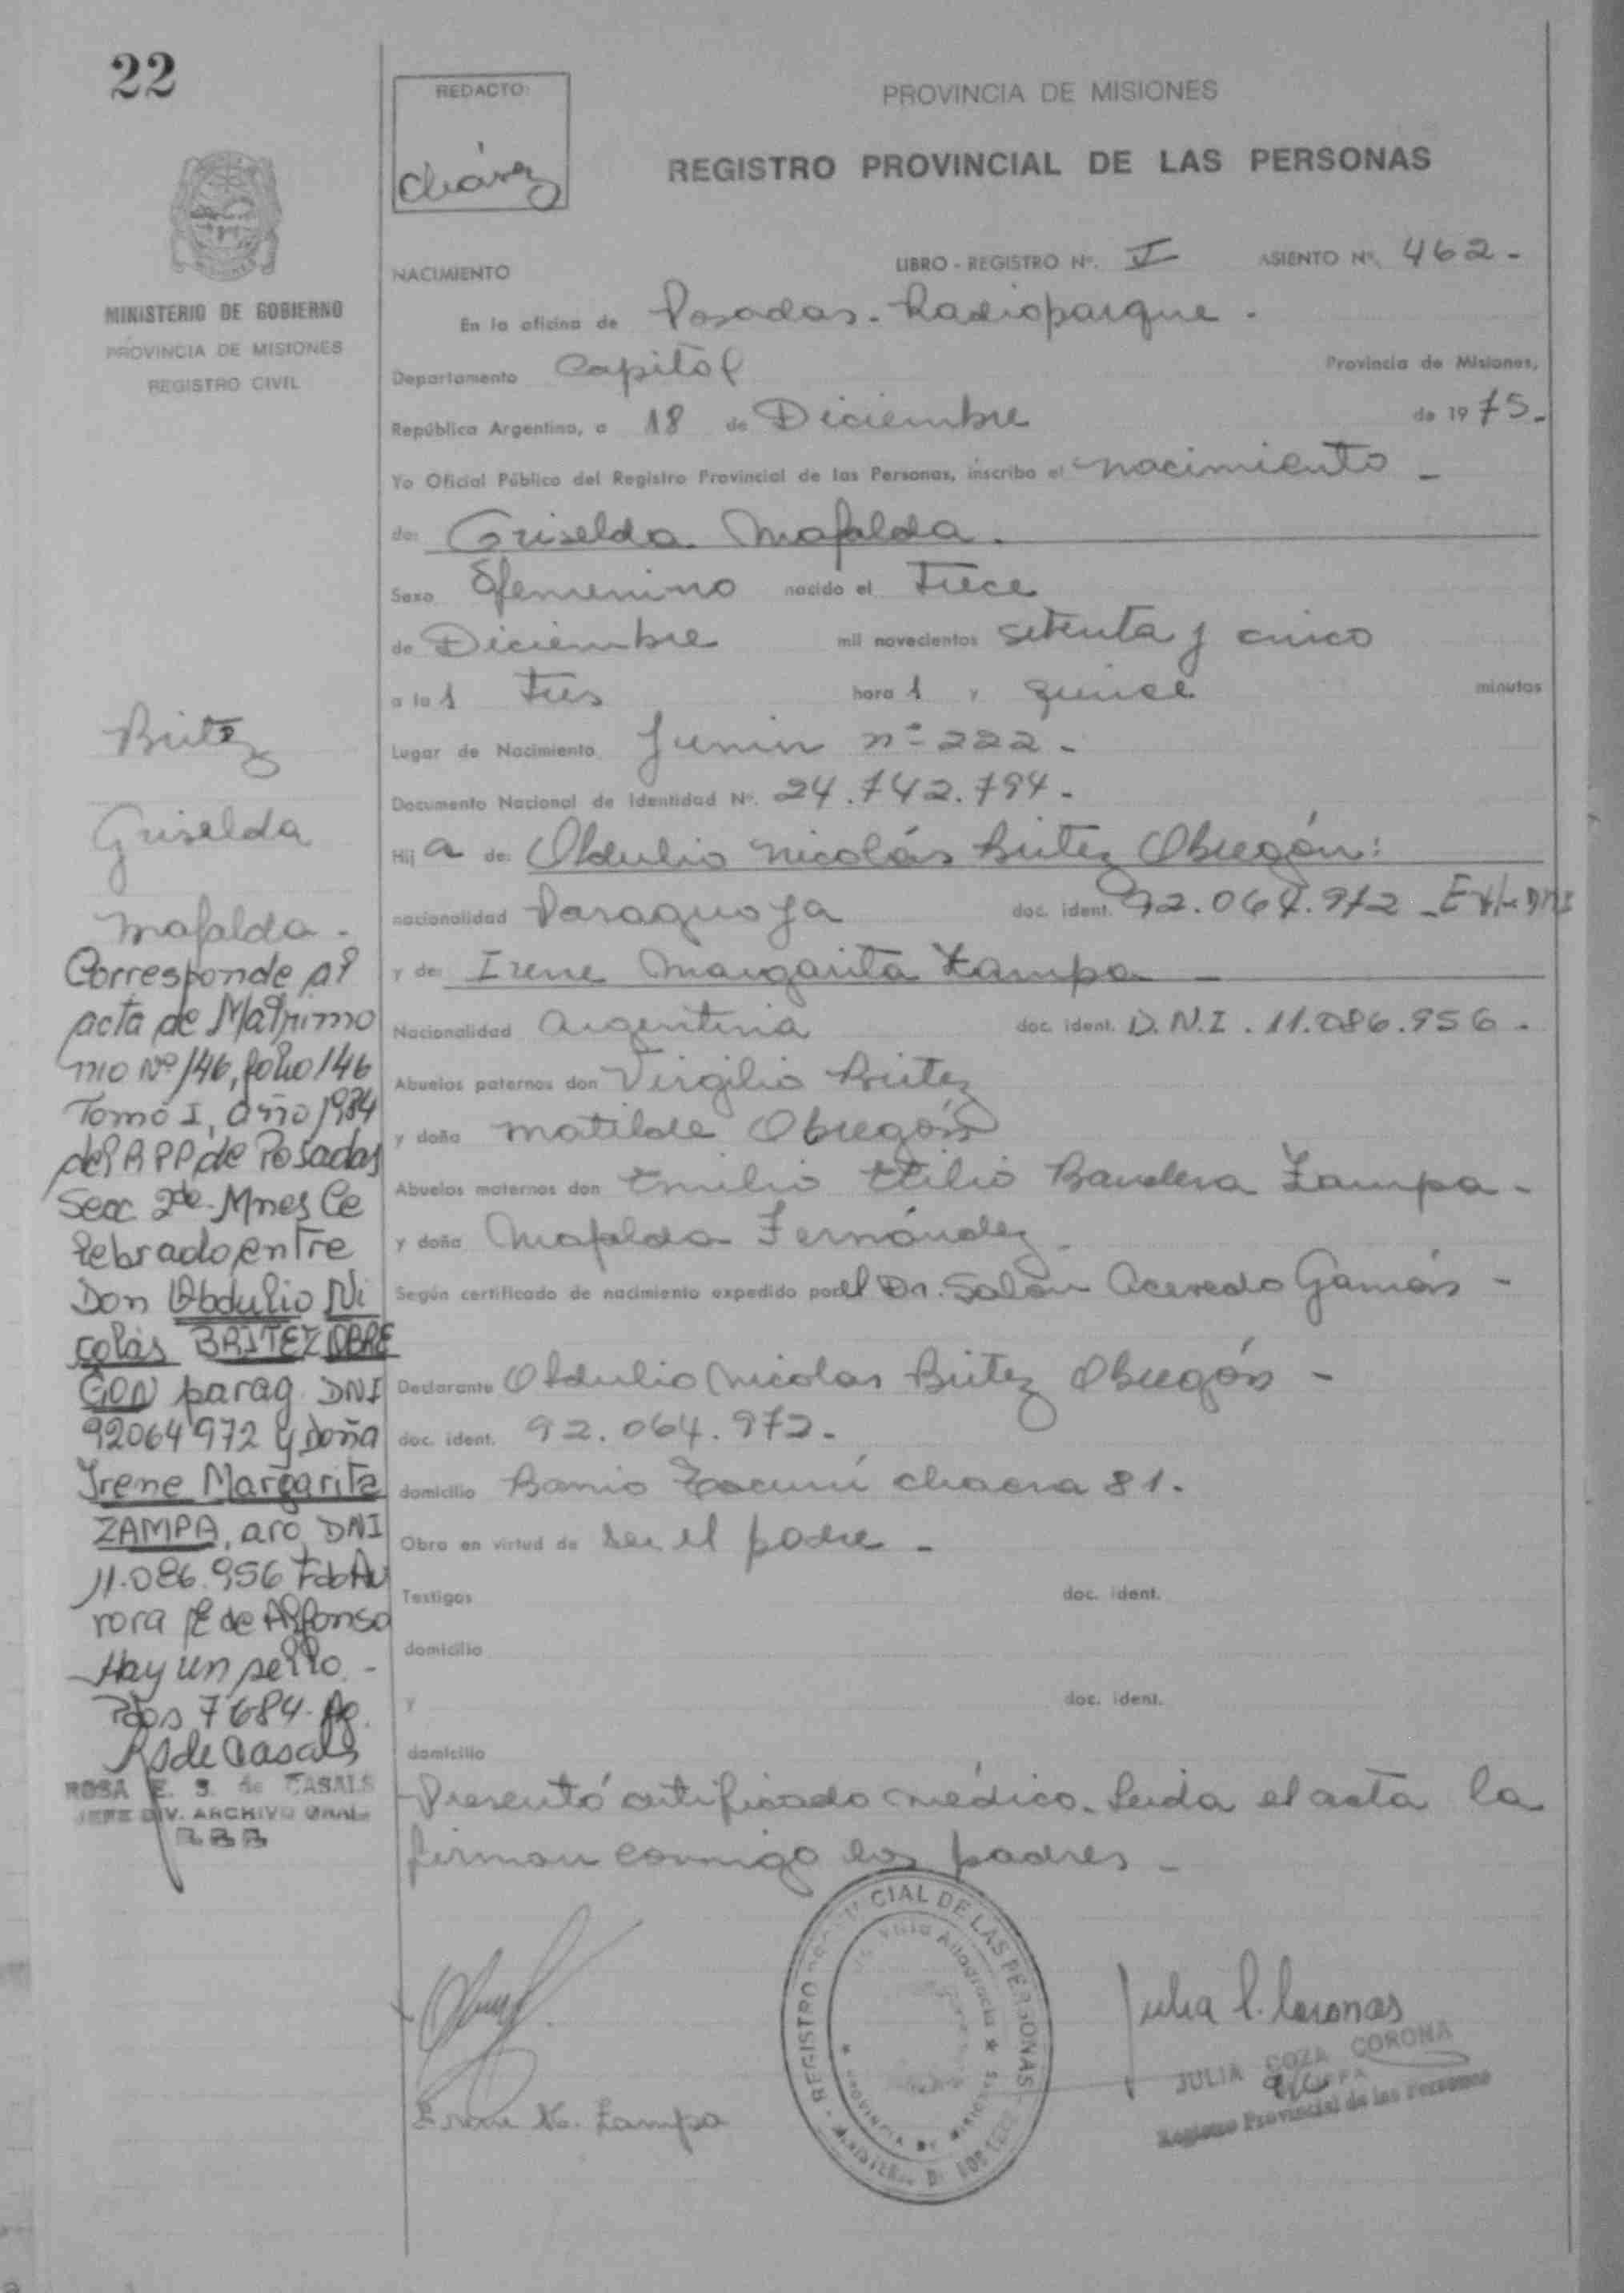 22
MINISTERIO DE GOBIERNO
PROVINCIA DE MISIONES
REGISTRO CIVIL
REDACTO:
Chávez
PROVINCIA DE MISIONES
REGISTRO PROVINCIAL DE LAS PERSONAS
NACIMIENTO LIBRO - REGISTRO Nº. V ASIENTO Nº. 462 -
En la oficina de Posadas - Radioparque .
Departamento Capital Provincia de Misiones,
República Argentina, a 18 de Diciembre de 1975 -
Yo Oficial Público del Registro Provincial de las Personas, inscribo el nacimiento -
de: Griselda Mafalda .
Sexo Femenino nacido el Trece
de Diciembre mil novecientos setenta y cinco
a la s Tres hora s y quince minutos
Lugar de Nacimiento Junín nº 222 -
Documento Nacional de Identidad Nº. 24.742.794 -
Hij a de: Obdulio Nicolás Britez Obregón :
nacionalidad Paraguaya doc. ident. 92.064.972 -
y de: Irene Margarita Zampa -
Nacionalidad Argentina doc. ident. D.N.I. 11.086.956 .
Abuelos paternos don Virgilio Britez
y doña Matilde Obregón
Abuelos maternos don Emilio Atilio Bandera Zampa -
y doña Mafalda Fernández -
Según certificado de nacimiento expedido por el Dr. Solón Acevedo -
Declarante Obdulio Nicolas Britez Obregón -
doc. ident. 92.064.972 -
domicilio Barrio chacra 81 .
Obra en virtud de ser el padre -
Testigos doc. ident.
domicilio
y doc. ident.
domicilio
Presentó certificado médico. Leída el acta la
firman conmigo los padres -
Britez
Griselda
Mafalda -
Corresponde al
acta de Matrimo
nio Nº 146, folio 146
Tomo I, año 1984
del RPP de Posadas
Secc 2da - Mnes Ce
lebrado entre
Don Obdulio Ni
colás BRITEZ OBRE
GON parag DNI
92064972 y Doña
Irene Margarita
ZAMPA, DNI
11.086.956 Fdo Au
rora de Alfonso
Hay un sello -
Pdas
R S de Casals
ROSA E. S. de CASALS
JEFE DIV. ARCHIVO GRAL
Irene M. Zampa
REGISTRO PROVINCIAL DE LAS PERSONAS
PROVINCIA DE MISIONES
Julia C. Coronas
JULIA COZA CORONA
Registro Provincial de las Personas